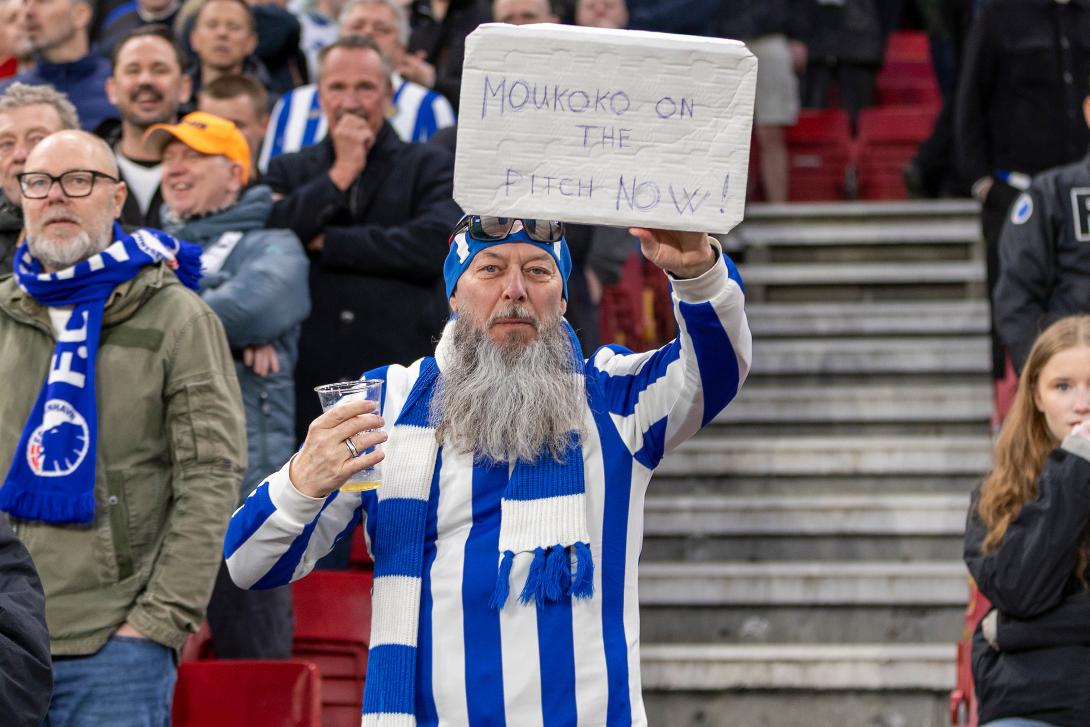 MOUKOKO ON
THE
PITCH NOW!
F.C.